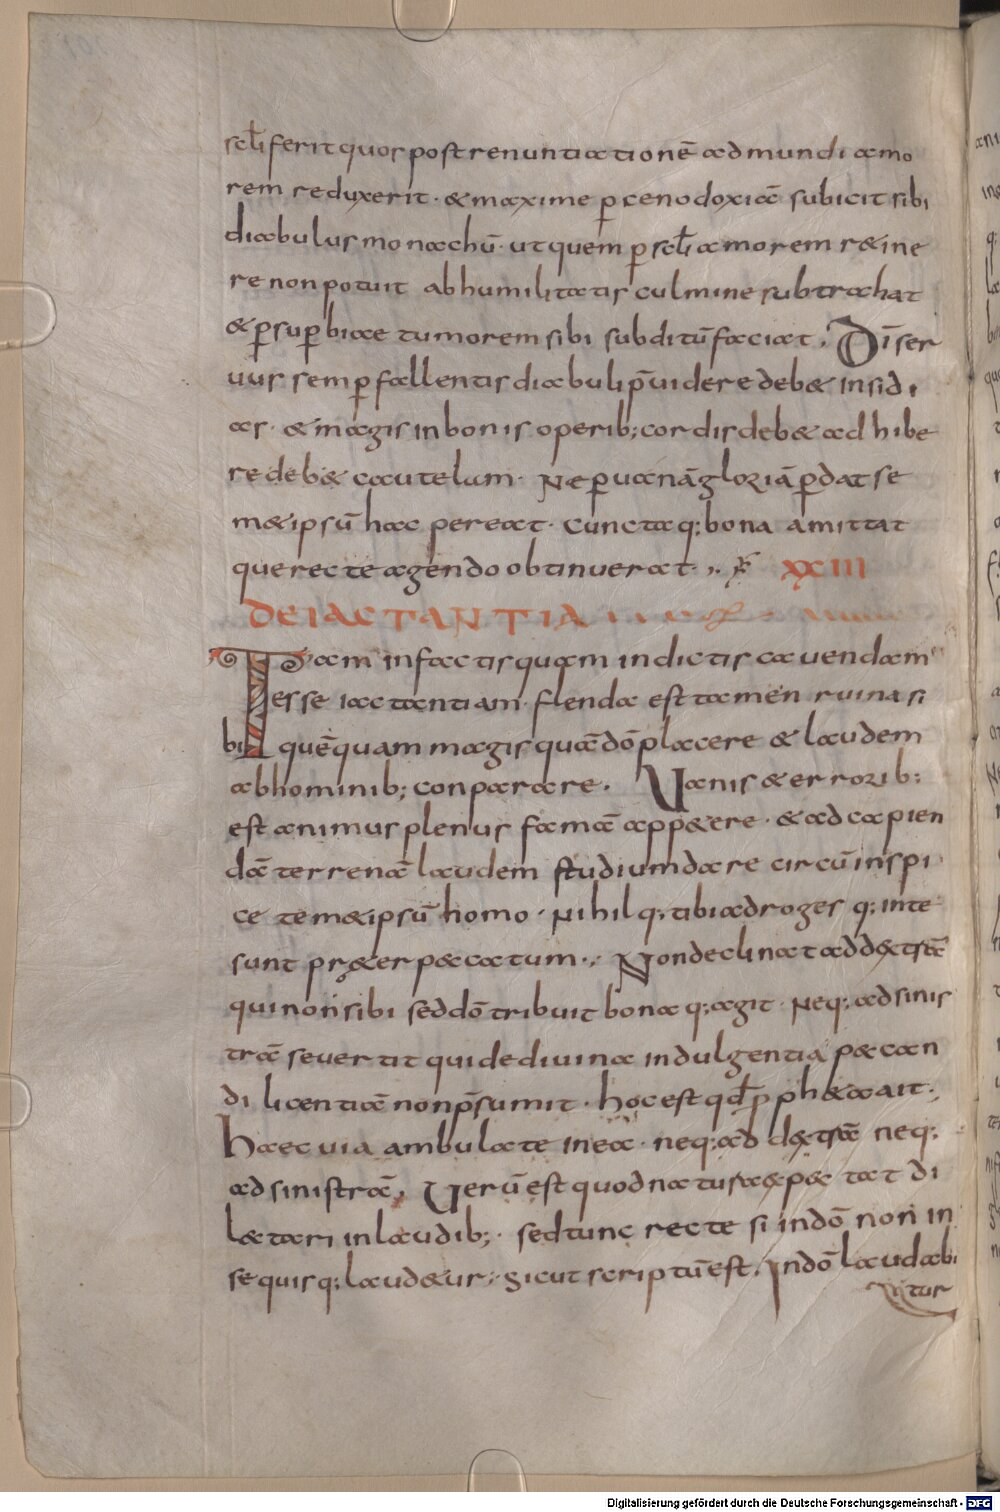 scl̄i ferit quos post renuntiationē ad mundi amo
rem reduxerit · & maxime ꝑ cenodoxiā subicit sibi
diabulus monachū · ut quem ꝑ scl̄i amorem r&ine
re non potuit ab humilitatis culmine subtrahat
& ꝑ suꝑbiae tumorem sibi subditū faciat, Dī ser
uus semꝑ fallentis diabuli p̄uidere deb& insidi
as · & magis in bonis operib; cordis deb& adhibe
re deb& cautelam · Ne ꝑ uanā gloriā ꝑdat se
m&ipsū hac pereat · cunctaq; bona amittat
que recte agendo obtinuerat ·, XXIII
DE IACTANTIA
Tam in factis quam in dictis cauendam
esse iactantiam · flenda est tamen ruina si
bi quēquam magis quā dō placere & laudem
ab hominib; conparare. Uanis & errorib;
est animus plenus famā app&ere · & ad capien
dā terrenā laudem studium dare circū inspi
ce tem&ipsū homo · Nihilq; tibi adroges q; inte
sunt pr&er pecatum ·, Non declinat ad d&tstē
qui non sibi sed dō tribuit bona q; agit · Neq; ad sinis
trā se vertit qui de divina indulgentia pecan
di licentiā non p̄sumit · hoc est qd̄ ꝓph&a ait ·,
Haec via ambulate in ea · neq; ad d&tstē neq;
ad sinistrā, Verū est quod natura app&at di
l&tari in laudib; · sed tunc recte si in dō non in
se quisq; laud&ur · sicut scriptū est. In dō laudabi
tur
Digitalisierung gefördert durch die Deutsche Forschungsgemeinschaft - DFG